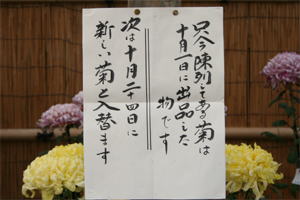 只今陳列してある菊は
十月一日に出品した
物です
次は十月二十四日に
新しい菊と入替ます